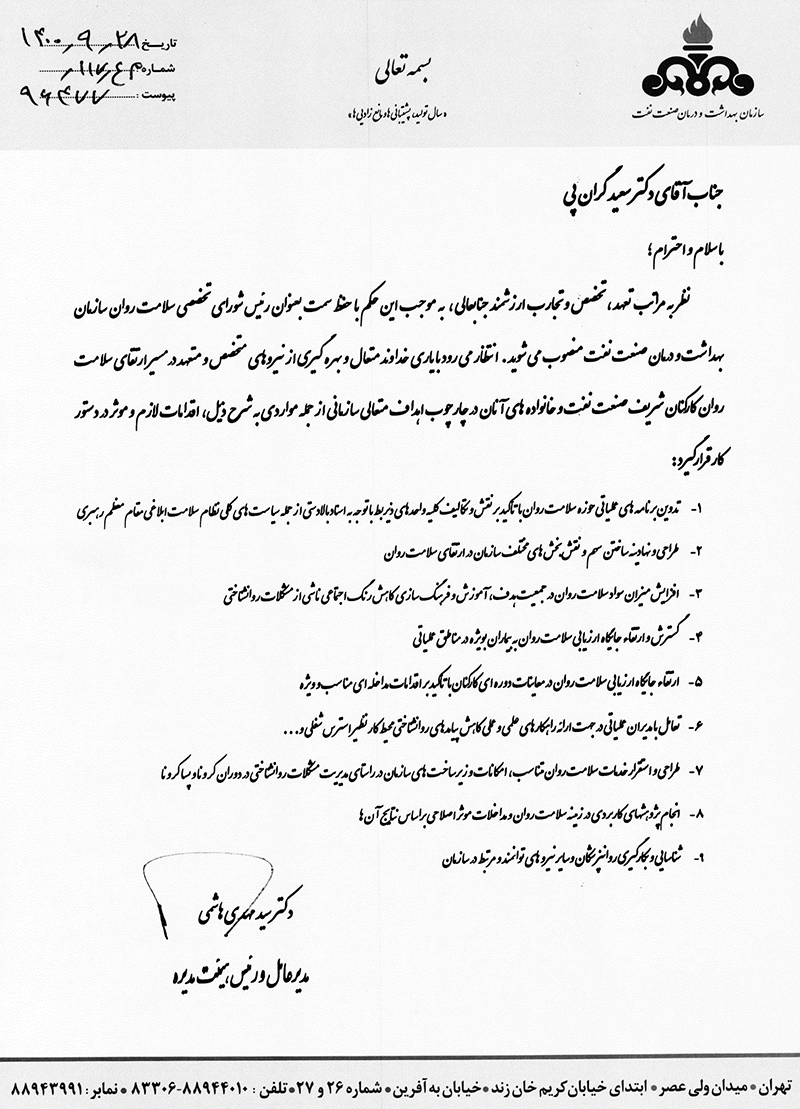 بسمه تعالی
«سال تولید، پشتیبانی‌ها و مانع زدایی‌ها»
سازمان بهداشت و درمان صنعت نفت
تاریخ: ۱۴۰۰/۹/۲۸
شماره:
پیوست: ۹۶۴۷۷
جناب آقای دکتر سعید گران پی
با سلام و احترام؛
نظر به مراتب تعهد، تخصص و تجارب ارزشمند جنابعالی، به موجب این حکم با حفظ سمت بعنوان رئیس شورای تخصصی سلامت روان سازمان
بهداشت و درمان صنعت نفت منصوب می شوید. انتظار می رود با یاری خداوند متعال و بهره گیری از نیروهای متخصص و متعهد در مسیر ارتقای سلامت
روان کارکنان شریف صنعت نفت و خانواده های آنان در چارچوب اهداف متعالی سازمانی از جمله مواردی به شرح ذیل، اقدامات لازم و موثر در دستور
کار قرار گیرد:
۱- تدوین برنامه های عملیاتی حوزه سلامت روان با تاکید بر نقش و تکالیف کلیه واحدهای ذیربط با توجه به اسناد بالادستی از جمله سیاست های کلی نظام سلامت ابلاغی مقام معظم رهبری
۲- طراحی و نهادینه ساختن سهم و نقش بخش های مختلف سازمان در ارتقای سلامت روان
۳- افزایش میزان سواد سلامت روان در جمعیت هدف، آموزش و فرهنگ سازی کاهش رنگ اجتماعی ناشی از مشکلات روانشناختی
۴- گسترش و ارتقاء جایگاه ارزیابی سلامت روان به بیماران بویژه در مناطق عملیاتی
۵- ارتقاء جایگاه ارزیابی سلامت روان در معاینات دوره ای کارکنان با تاکید بر اقدامات مداخله ای مناسب و ویژه
۶- تعامل با مدیران عملیاتی در جهت ارائه راهکارهای علمی و عملی کاهش پیامدهای روانشناختی محیط کار نظیر استرس شغلی و...
۷- طراحی و استقرار خدمات سلامت روان مناسب، امکانات و زیرساخت های سازمان در راستای مدیریت مشکلات روانشناختی در دوران کرونا و پسا کرونا
۸- انجام پژوهشهای کاربردی در زمینه سلامت روان و مداخلات موثر اصلاحی بر اساس نتایج آن ها
۹- شناسایی و بکارگیری روانپزشکان و سایر نیروهای توانمند و مرتبط در سازمان
دکتر سید مهدی هاشمی
مدیرعامل و رئیس هیئت مدیره
تهران • میدان ولی عصر • ابتدای خیابان کریم خان زند • خیابان به آفرین • شماره ۲۶ و ۲۷ • تلفن: ۸۸۹۴۴۰۱۰-۸۳۳۰۶ • نمابر: ۸۸۹۴۳۹۹۱